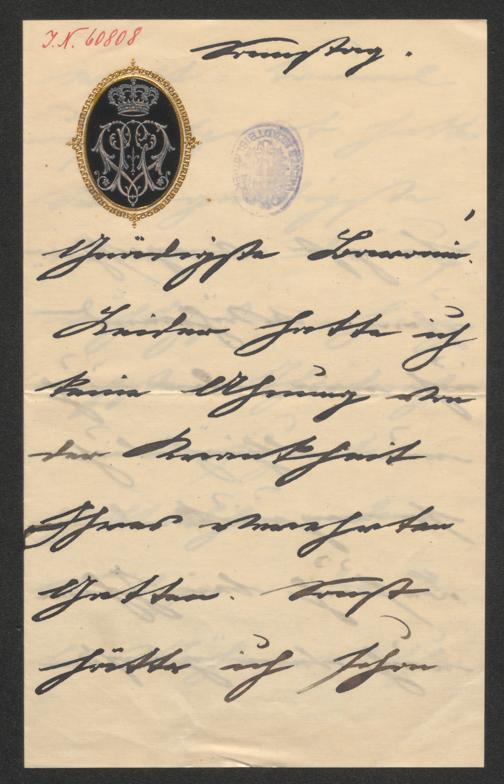 J.N. 60808
Samstag.
Gnädigste Baronin!
Leider hatte ich
keine Ahnung von
der Krankheit
Ihres verehrten
Gatten. Sonst
hätte ich schon